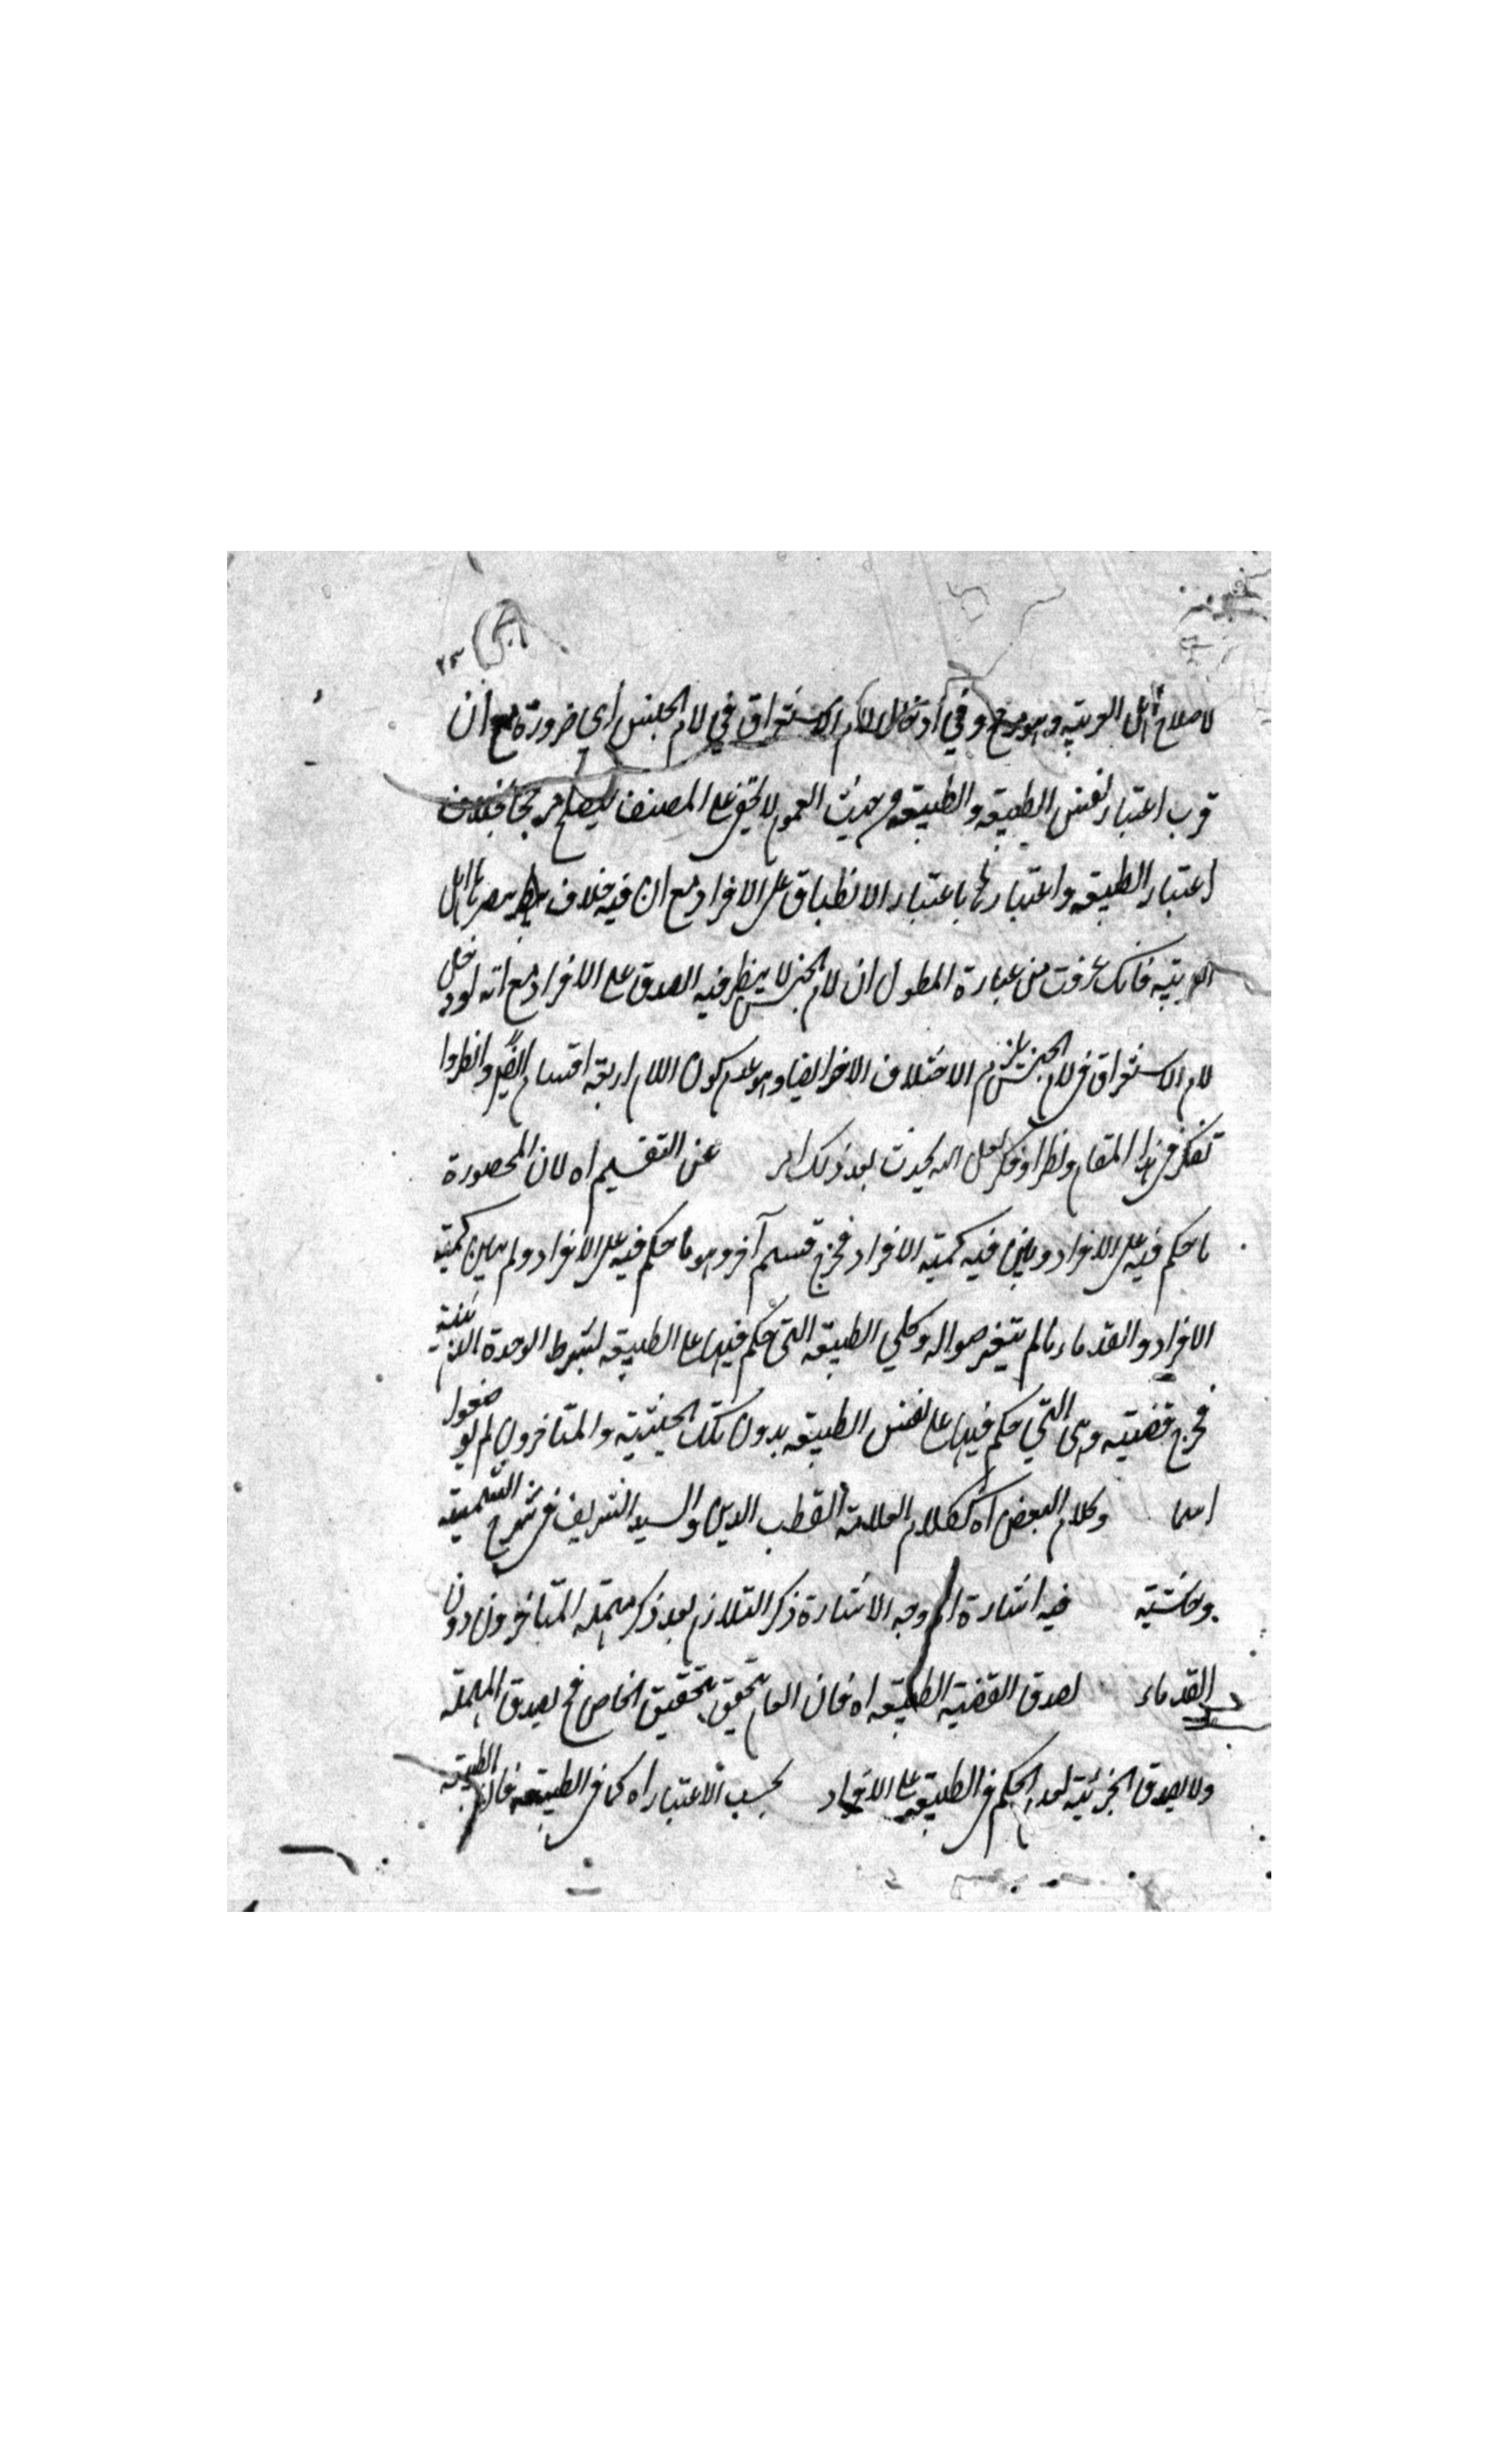 ٢٣
لاصلاح اهل العربية وهو مرجح وفي ادخال لام الاستغراق في لام الجنس أي ضرورة مع ان
قرب اعتبار نفس الطبيعة والطبيعة من حيث العموم لا يخفى على المصنف يصلح مرجحا بخلاف
اعتبار الطبيعة واعتبارها باعتبار الانطباق على الافراد مع ان فيه خلاف اهل
العربية فانك عرفت من عبارة المطول ان لام الجنس لا ينظر فيه الصدق على الافراد مع انه لو دخل
لام الاستغراق في لام الجنس يلزم الاختلاف الاخر ايضا وهو عدم كون اللام اربعة اقسام وانظروا
تفكر في هذا المقام ونظرا وفكر لعل الله يحدث بعد ذلك امرا عن التقسيم اه لان المحصورة
ما حكم فيه على الافراد وبين فيه كمية الافراد فخرج قسم آخر وهو ما حكم فيه على الافراد ولم يبين كمية
الافراد والقدماء لما لم يتغير صواله وكلي الطبيعة التي حكم فيها على الطبيعة بشرط الوحدة الذهنية
فخرج قضية وهي التي حكم فيها على نفس الطبيعة بدون تلك الحيثية والمتاخرون لم
اسما وكلام البعض اه ككلام العلامة القطب الدين والسيد الشريف في شرح الشمسية
وحاشيته فيه اشارة الى وجه الاشارة ذكر التلازم بعد ذكر مهملة المتاخرون دون
القدماء لصدق القضية الطبيعة اه فان العام يتحقق بتحقيق الخاص فح يصدق المهملة
ولا يصدق الجزئية لعدم الحكم في الطبيعة على الافراد بحسب الاعتبار اه كما في الطبيعة فان الطبيعة